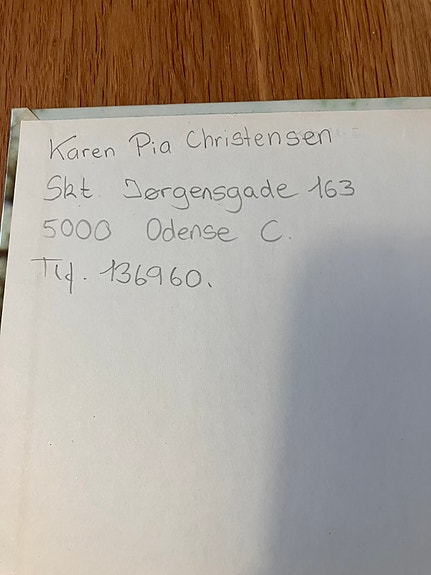 Karen Pia Christensen
Skt. Jørgensgade 163
5000 Odense C.
Tlf. 136960.